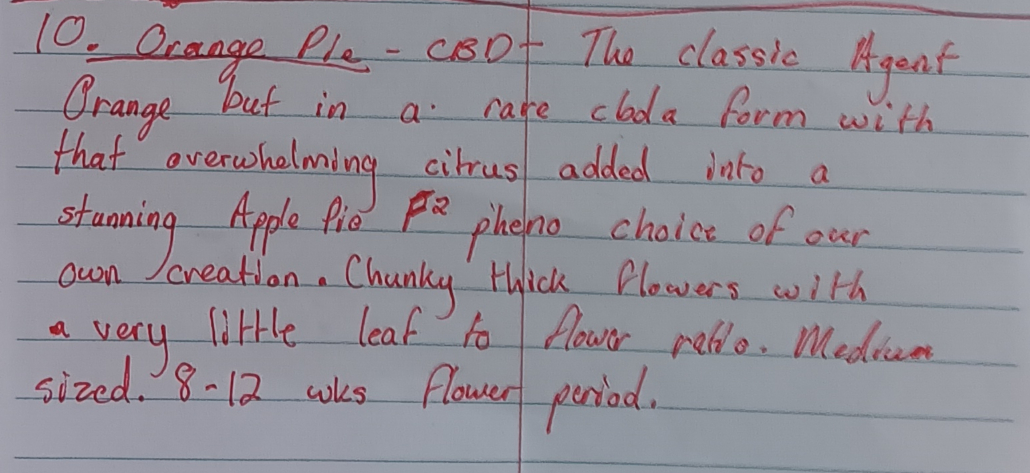 10. Orange Pie - CBD - The classic Agent
Orange but in a rare cbda form with
that overwhelming citrus added into a
stunning Apple Pie F2 pheno choice of our
own creation. Chunky thick flowers with
a very little leaf to flower ratio. Medium
sized. 8-12 wks flower period.